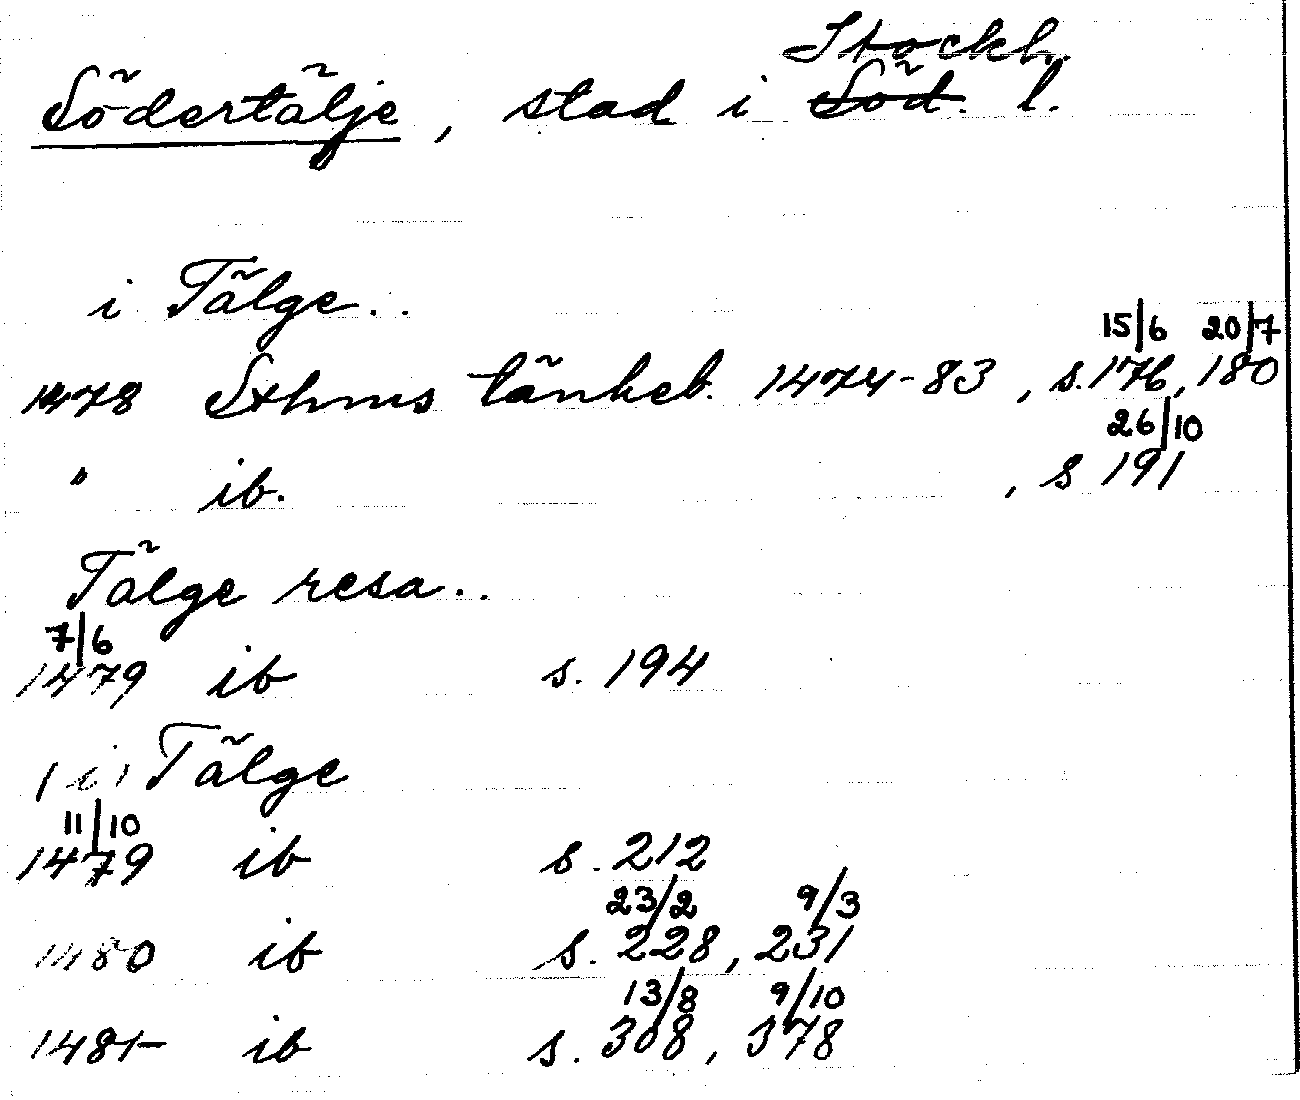 Stockh.
Södertälje, stad i Söd. l.
i Tälge..
15/6 20/7
1478 Sthms tänkeb. 1474-83, s. 176, 180
26/10
" ib. , s 191
Tälge resa..
7/6
1479 ib s. 194
(i) Tälge
11/10
1479 ib s. 212
23/2 9/3
1480 ib s. 228, 231
13/8 9/10
1481- ib s. 308, 378